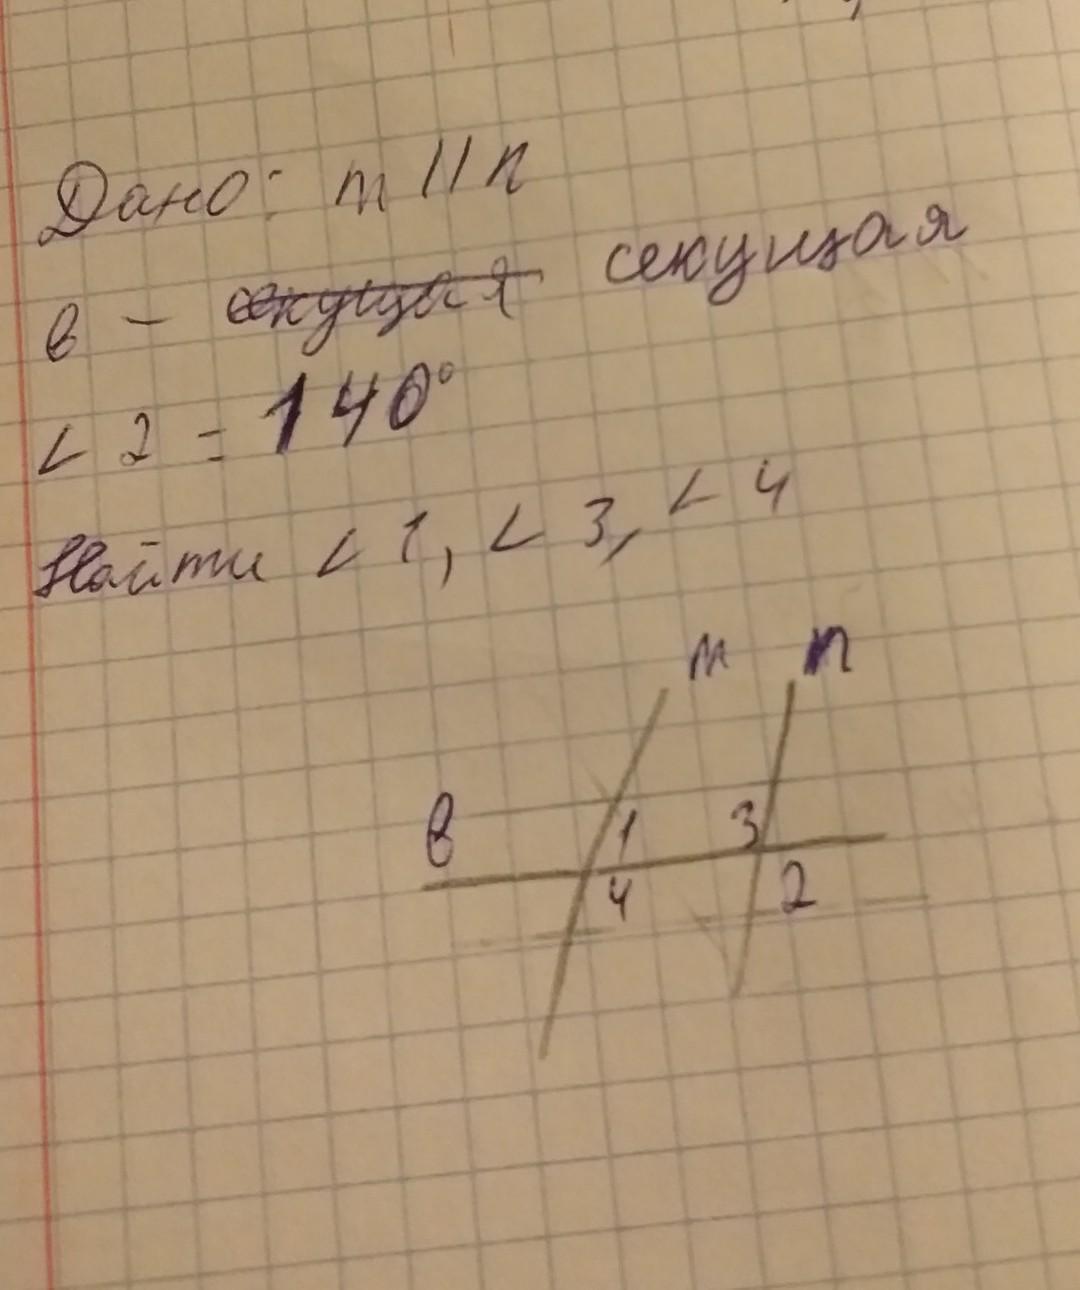 Дано: m || n
в – секущая секущая
∠ 2 = 140°
Найти ∠ 1, ∠ 3, ∠ 4
m n
в 1 3
4 2